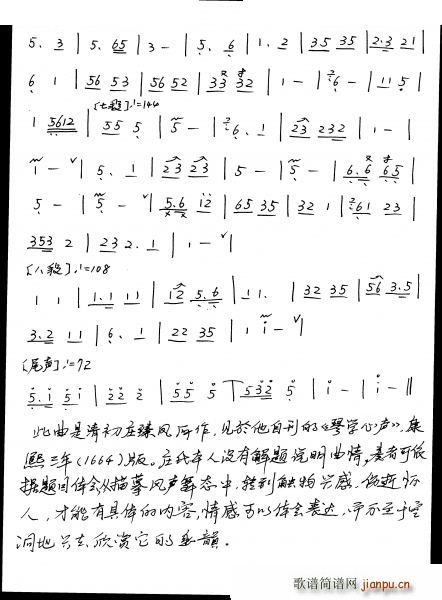 5. 3 | 5. 65 | 3 - | 5. 6 | 1. 2 | 35 35 | 2.3 21 |
6 1 | 56 53 | 56 52 | 33 32 | 1 - | 6 - | 11 5 |
[七段]♩=144
1 5612 | 55 5 | 5 - | 6. 1 | 23 232 | 1 - |
1 - | 5. 1 | 23 23 | 5 - | 5 - | 6.6 65 |
5 - | 5 - | 5.6 12 | 65 35 | 32 1 | 61 23 |
353 2 | 23 2.1 | 1 - |
[八段]♩=108
1 1 | 1.1 11 | 12 5.6 | 11. | 32 35 | 56 3.5 |
3.2 11 | 6. 1 | 22 35 | 1 1 - |
[尾声]♩=72
5.1 51 | 22 2 | 55 5 | 532 5 | 1 - | 1 - ||
此曲是清初庄臻凤所作,见於他自刊的《琴学心声》,康
熙三年(1664)版。庄氏本人没有解题说明曲情,奏者可依
据题目体会从描摹风声舞态中,转到触物兴感
人,才能有具体的内容,情感可以体会表达,而不至于空
洞地只去欣赏它的声韻。
歌谱简谱网
jianpu.cn